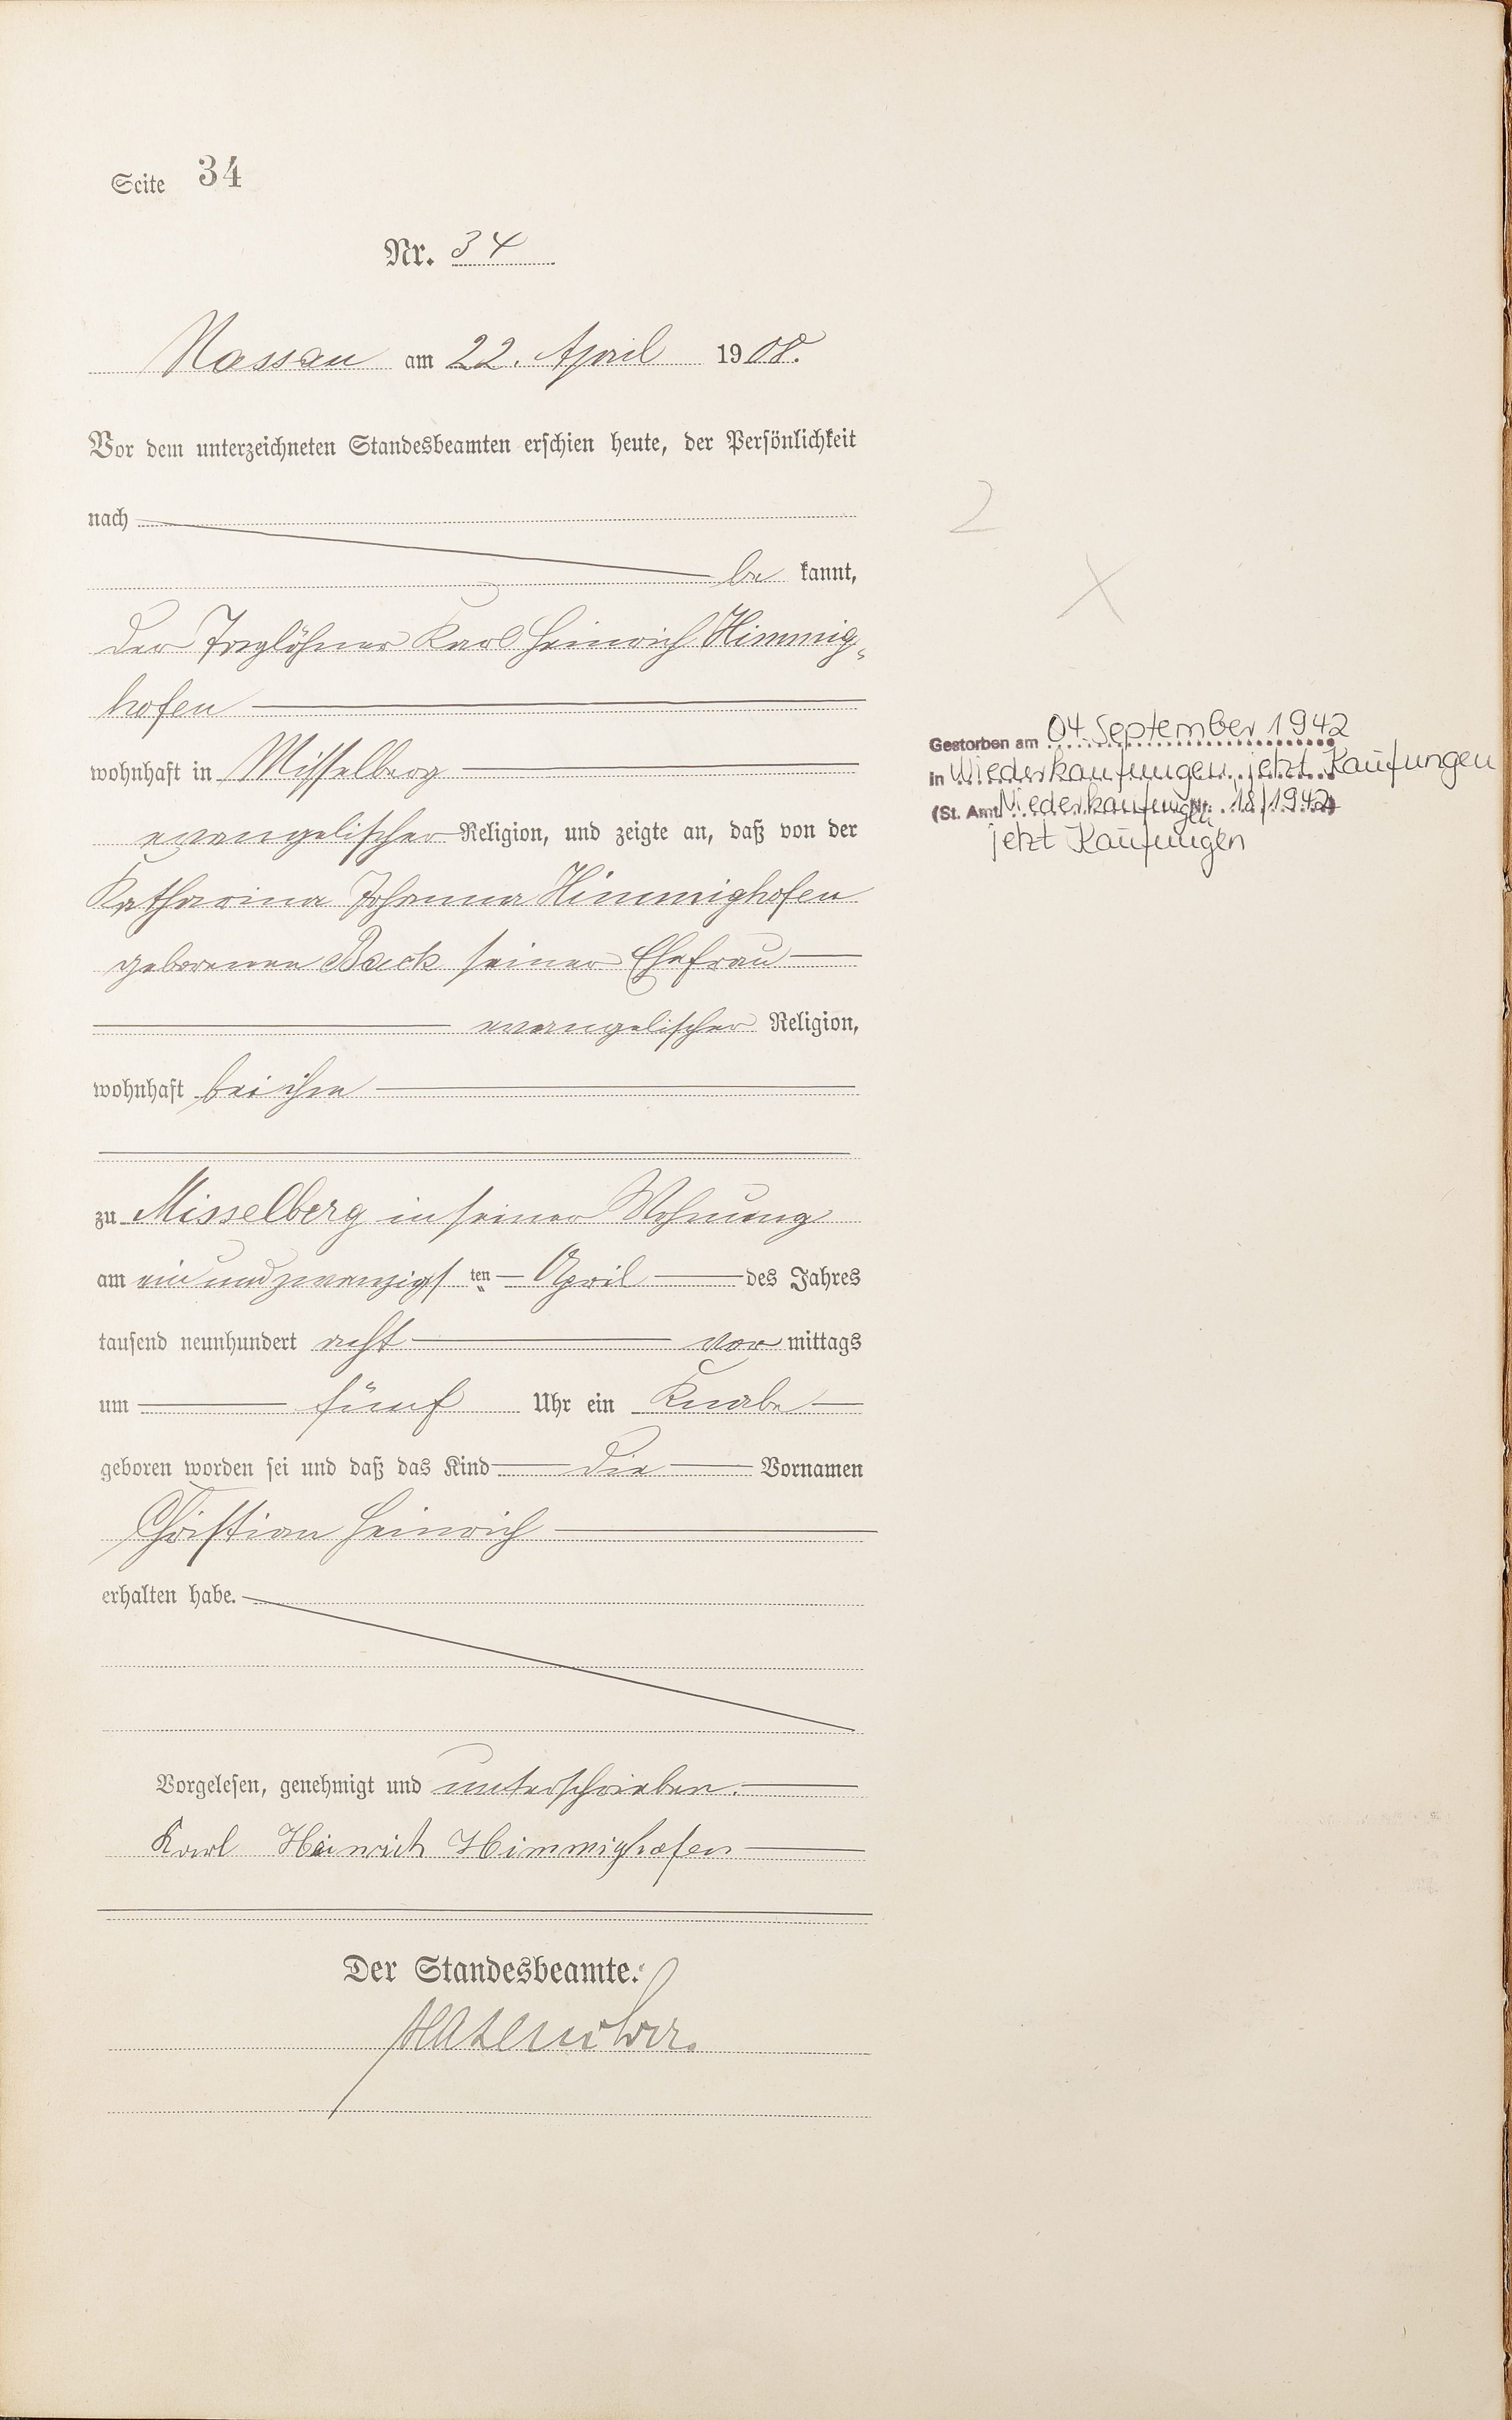 Seite 34
Nr. 34
Nassau am 22. April 1908.
Vor dem unterzeichneten Standesbeamten erschien heute, der Persönlichkeit
nach
be kannt,
der Taglöhner Karl Heinrich Himmig-
hofen
wohnhaft in Misselberg
evangelischer Religion, und zeigte an, daß von der
Katharina Johanna Himmighofen
geborenen Back seiner Ehefrau
evangelischer Religion,
wohnhaft bei ihm
zu Misselberg in seiner Wohnung
am ein und zwanzigsten April des Jahres
tausend neunhundert acht vor mittags
um fünf Uhr ein Knabe
geboren worden sei und daß das Kind die Vornamen
Christian Heinrich
erhalten habe.
Vorgelesen, genehmigt und unterschrieben.
Karl Heinrich Himmighofen
Der Standesbeamte.
2
X
Gestorben am 04. September 1942
in Niederkaufungen, jetzt Kaufungen
(St. Amt Niederkaufungen Nr. 18/1942)
jetzt Kaufungen